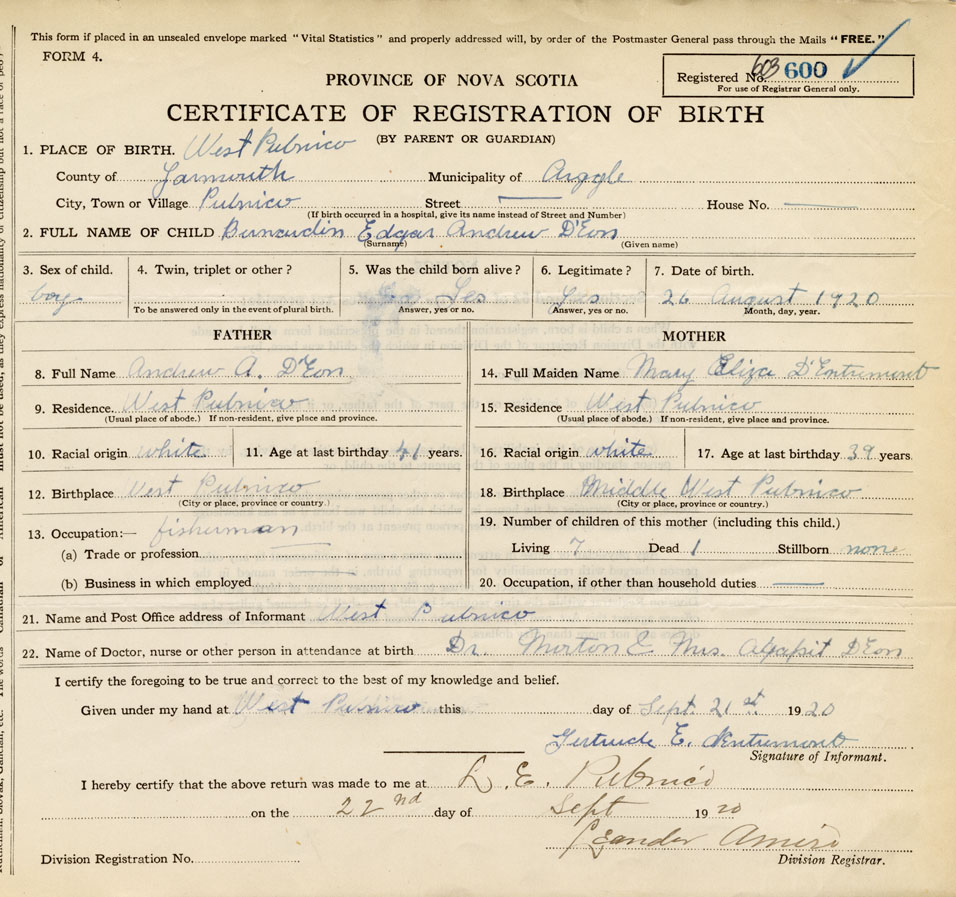 This form if placed in an unsealed envelope marked "Vital Statistics" and properly addressed will, by order of the Postmaster General pass through the Mails "FREE."
FORM 4.
Registered No. 603 600
For use of Registrar General only.
PROVINCE OF NOVA SCOTIA
CERTIFICATE OF REGISTRATION OF BIRTH
(BY PARENT OR GUARDIAN)
1. PLACE OF BIRTH. West Pubnico
County of Yarmouth Municipality of Argyle
City, Town or Village Pubnico Street — House No. —
(If birth occurred in a hospital, give its name instead of Street and Number)
2. FULL NAME OF CHILD Bernardin Edgar Andrew D'Eon
(Surname) (Given name)
3. Sex of child. 4. Twin, triplet or other? 5. Was the child born alive? 6. Legitimate? 7. Date of birth.
boy Yes Yes 26 August 1920
To be answered only in the event of plural birth. Answer, yes or no. (Answer, yes or no. Month, day, year.
FATHER MOTHER
8. Full Name Andrew A. D'Eon 14. Full Maiden Name Mary Eliza D'Entremont
9. Residence. West Pubnico 15. Residence West Pubnico
(Usual place of abode.) If non-resident, give place and province. (Usual place of abode.) If non-resident, give place and province.
10. Racial origin white 11. Age at last birthday 41 years. 16. Racial origin white 17. Age at last birthday 39 years.
12. Birthplace West Pubnico 18. Birthplace Middle West Pubnico
(City or place, province or country.) (City or place, province or country.)
13. Occupation:— fisherman 19. Number of children of this mother (including this child.)
(a) Trade or profession Living 7 Dead 1 Stillborn none
(b) Business in which employed 20. Occupation, if other than household duties —
21. Name and Post Office address of Informant West Pubnico
22. Name of Doctor, nurse or other person in attendance at birth Dr. Morton & Mrs. D'Eon
I certify the foregoing to be true and correct to the best of my knowledge and belief.
Given under my hand at West Pubnico this day of Sept. 21st 1920
Gertrude E. D'Entremont
Signature of Informant.
I hereby certify that the above return was made to me at L. E. Pubnico
on the 22nd day of Sept 1920
Leander Amiro
Division Registration No. Division Registrar.